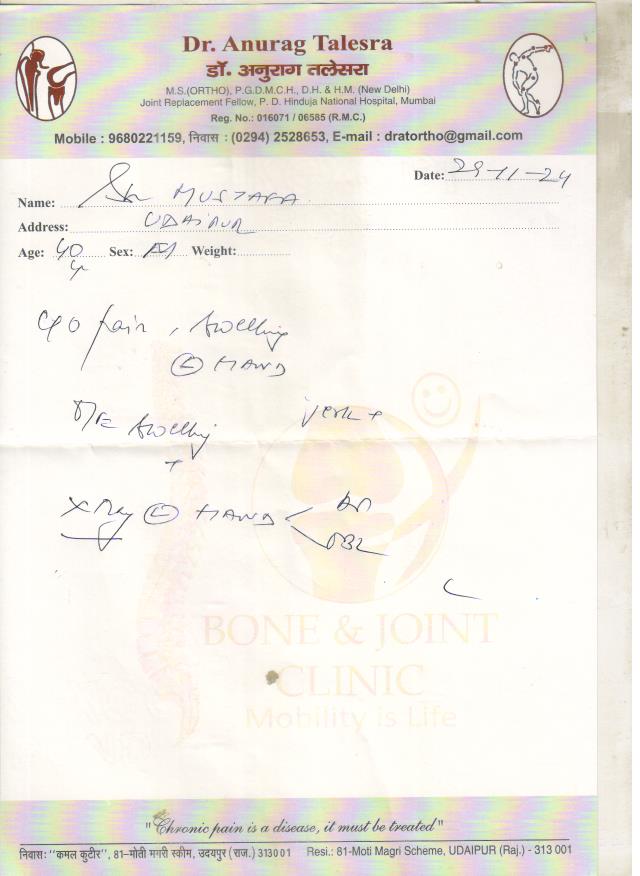 Dr. Anurag Talesra
डॉ. अनुराग तलेसरा
M.S.(ORTHO), P.G.D.M.C.H., D.H. & H.M. (New Delhi)
Joint Replacement Fellow, P. D. Hinduja National Hospital, Mumbai
Reg. No.: 016071 / 06585 (R.M.C.)
Mobile : 9680221159, निवास : (0294) 2528653, E-mail : dratortho@gmail.com
Date: 29-11-24
Name: MUSTAFA
Address: UDAIPUR
Age: 40 Sex: M Weight:
yr
C/O pain, swelling
(L) HAND
O/E swelling
+
X Ray (L) HAND < AP
OBL
BONE & JOINT
CLINIC
Mobility is Life
"Chronic pain is a disease, it must be treated"
निवास: "कमल कुटीर", 81-मोती मगरी स्कीम, उदयपुर (राज.) 313001 Resi.: 81-Moti Magri Scheme, UDAIPUR (Raj.) - 313 001